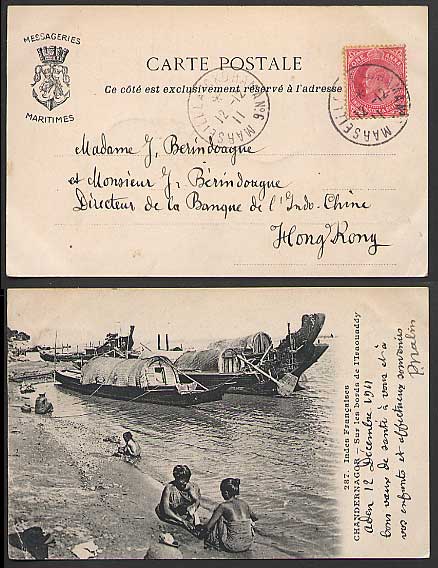 MESSAGERIES
MARITIMES
CARTE POSTALE
Ce côté est exclusivement réservé à l'adresse
ONE ANNA
12-12
11
MARSEILLE
Nº6
MARSEILLE
Madame J, Berindoague
et Monsieur J, Bérindoague
Directeur de la Banque de l'Indo-Chine
Hong Kong
287. Indes Françaises
CHANDERNAGOR - Sur les bords de l'Iraouaddy
Aden 12 Décembre 1911
bons vœux de santé à vous et à
vos enfants et affectueux souvenirs